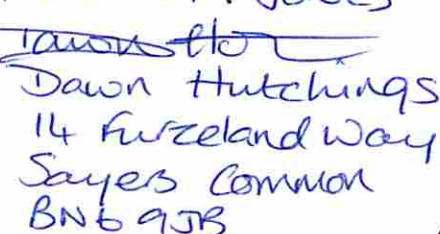 Dawn Hutchings
14 Furzeland Way
Sayers Common
BN6 9JB